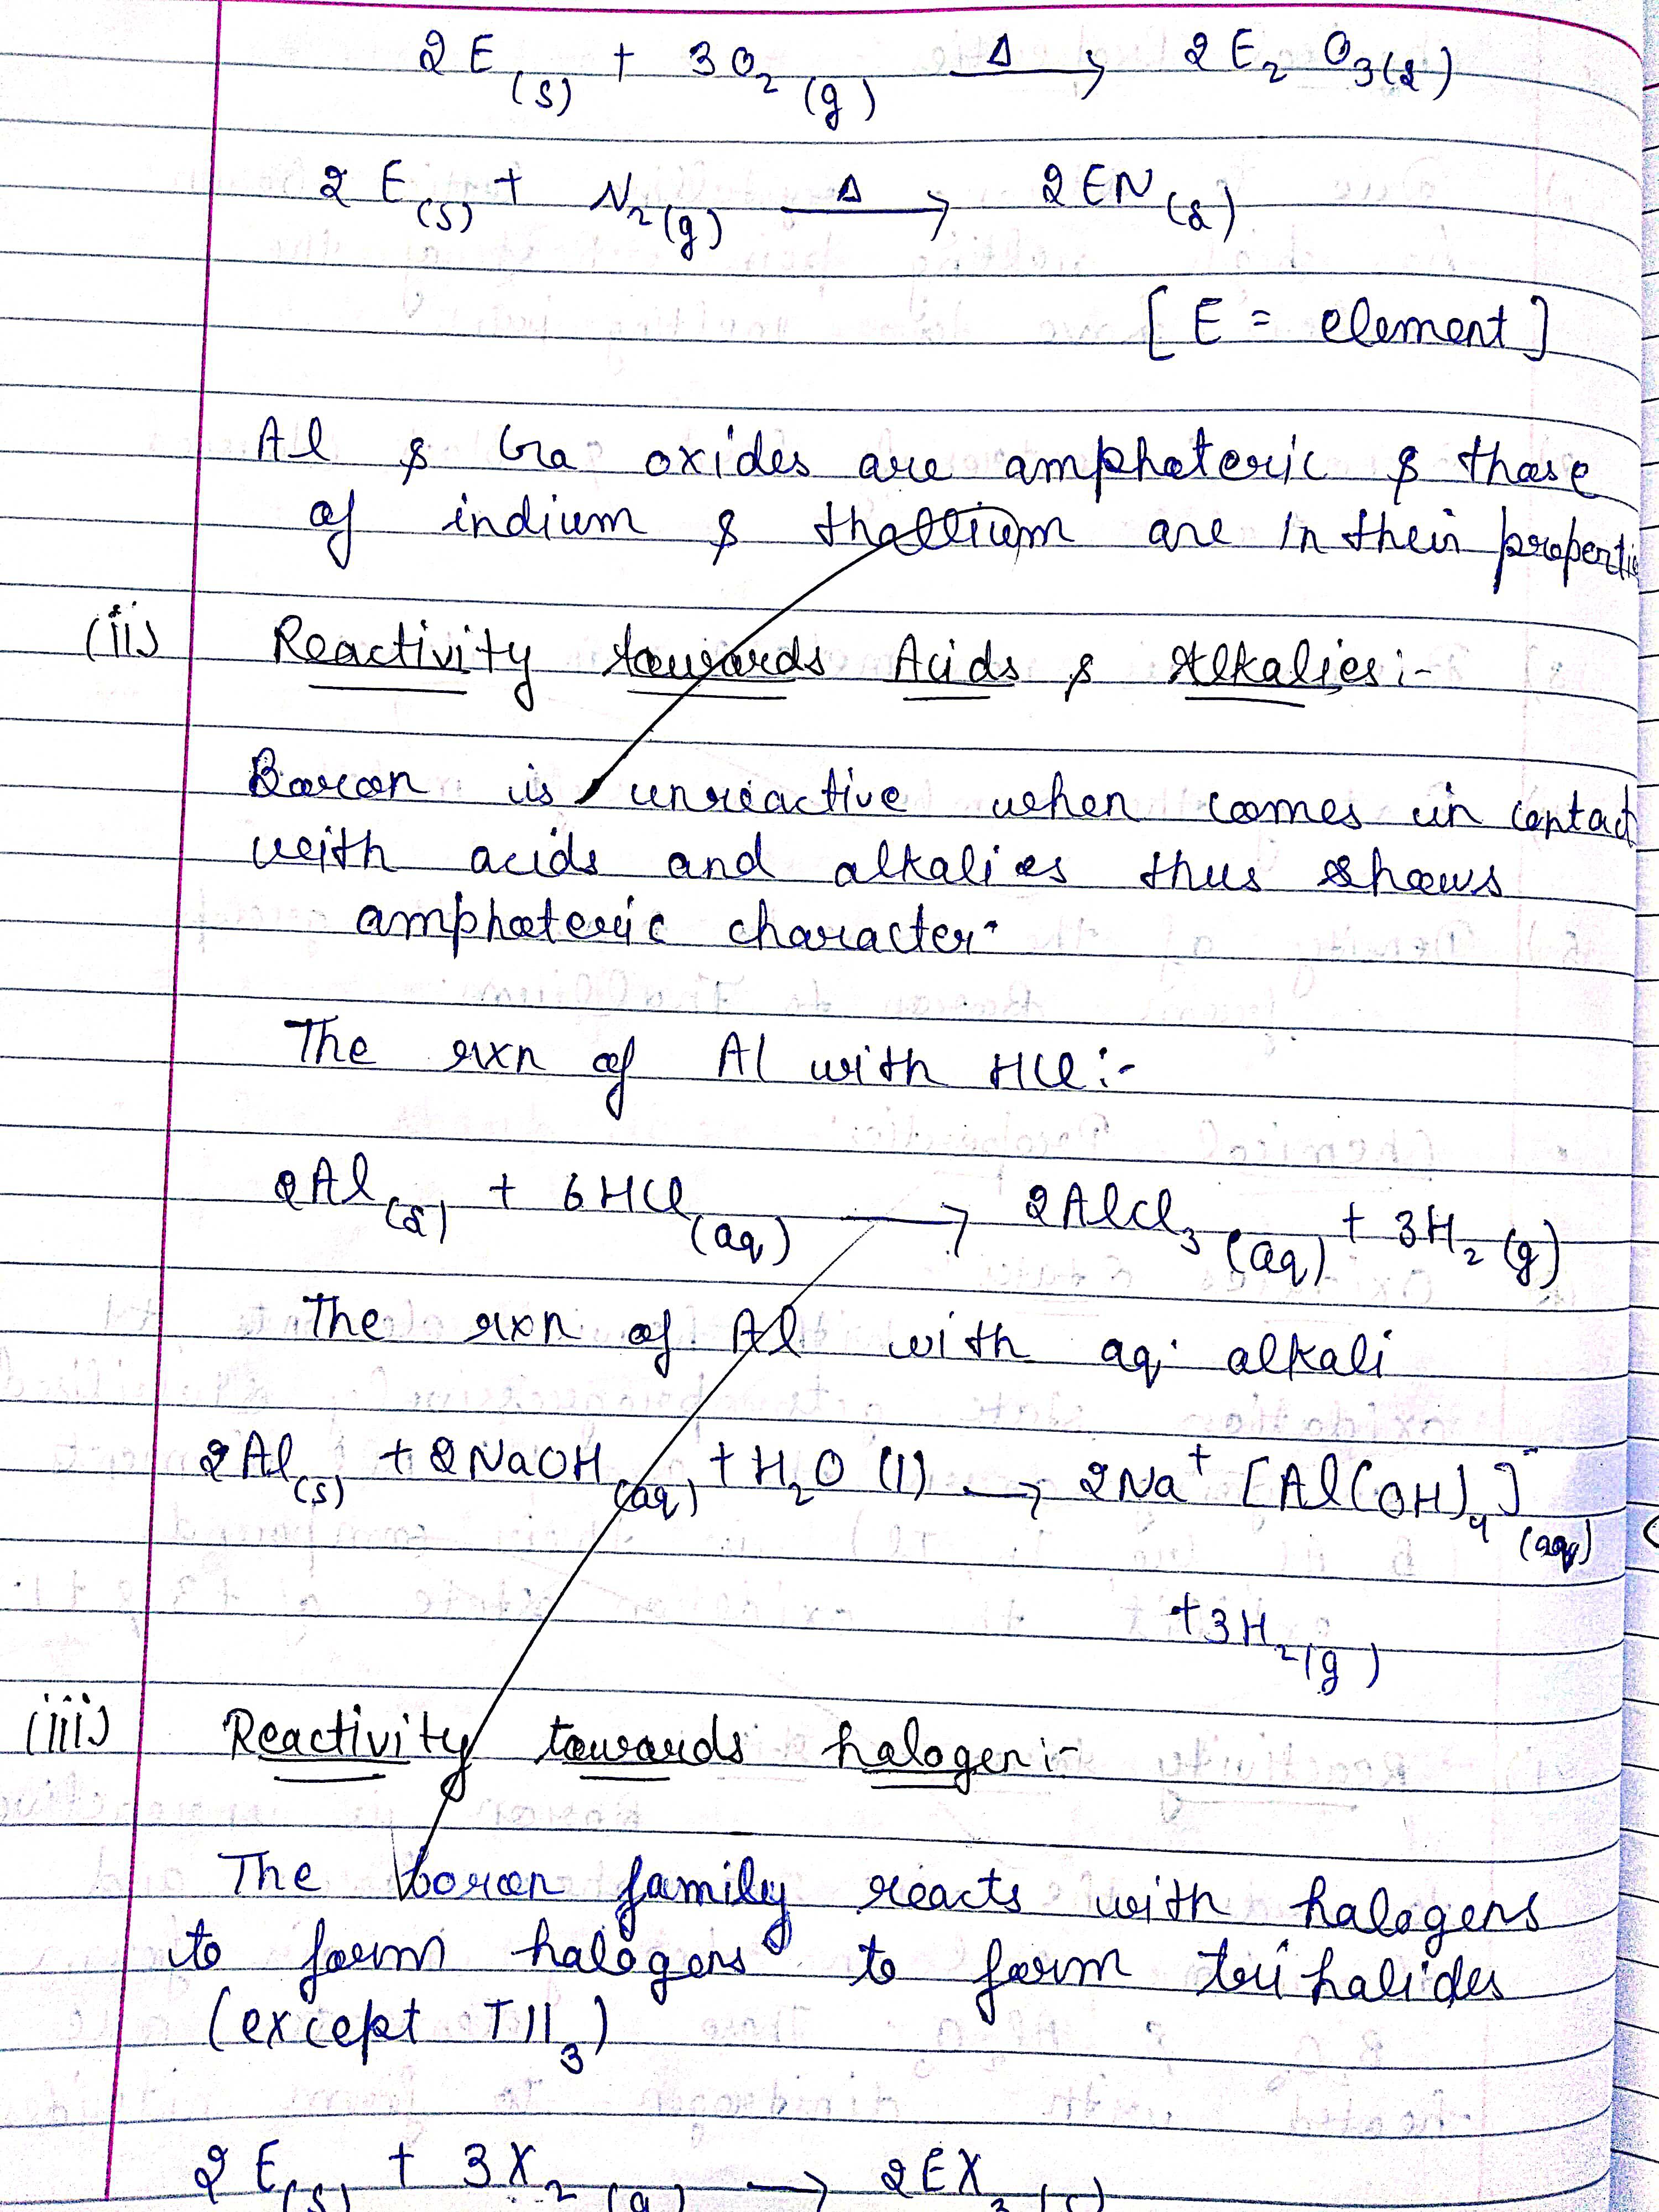 2E(s) + 3O₂(g) —Δ→ 2E₂O₃(s)
2E(s) + N₂(g) —Δ→ 2EN(s)
[E = element]
Al & Ga oxides are amphoteric & those
of indium & thallium are in their properti
(ii) Reactivity towards Acids & Alkalies:-
Boron is unreactive when comes in contact
with acids and alkalies thus shows
amphoteric character.
The rxn of Al with HCl:-
2Al(s) + 6HCl(aq) → 2AlCl₃(aq) + 3H₂(g)
The rxn of Al with aq. alkali
2Al(s) + 2NaOH(aq) + H₂O(l) → 2Na⁺[Al(OH)₄]⁻(aq)
+3H₂(g)
(iii) Reactivity towards halogen:-
The boron family reacts with halogens
to form halogens to form trihalides
(except TlI₃)
2E(s) + 3X₂(g) → 2EX₃(s)